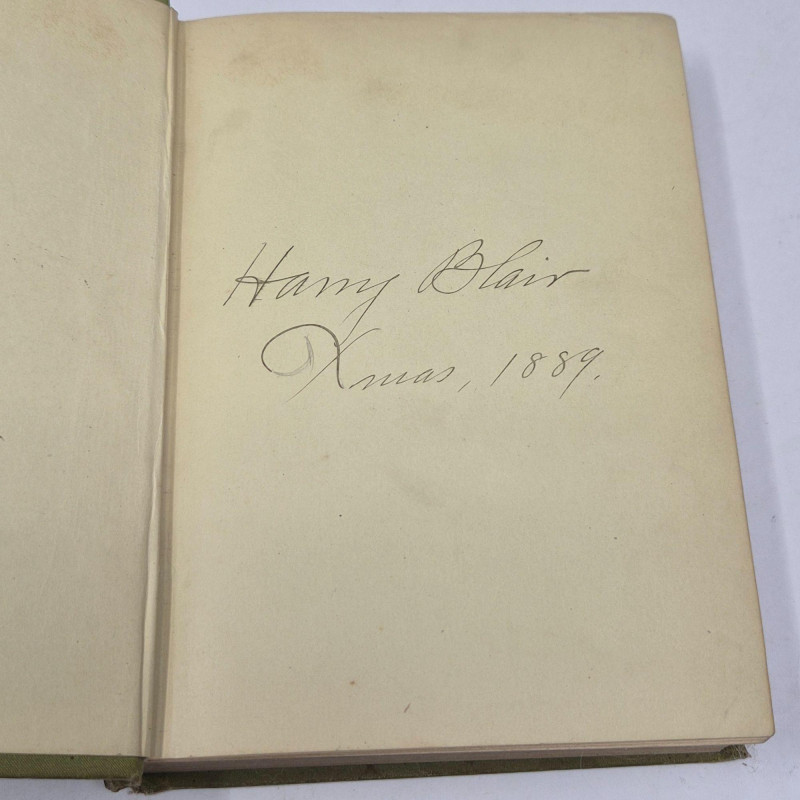 Harry Blair
Xmas, 1889.